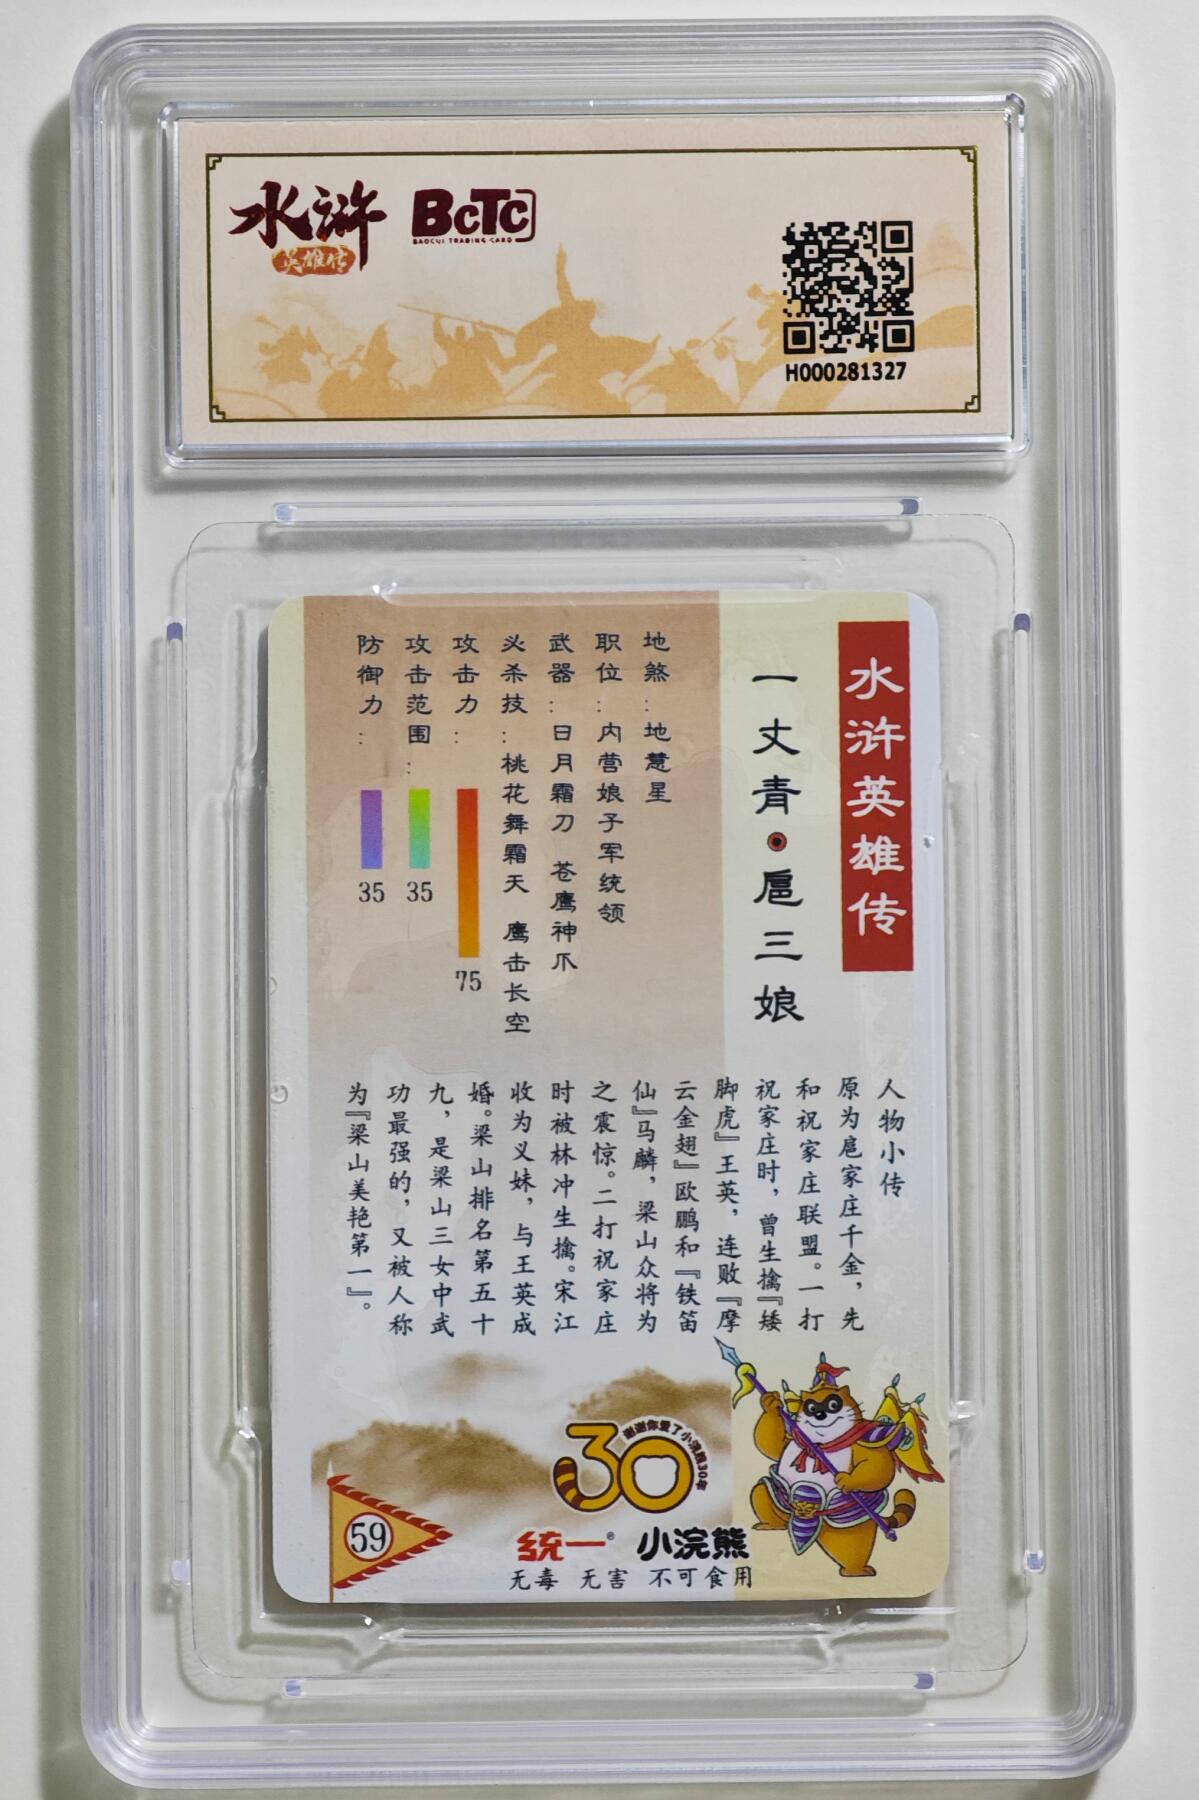 水浒
英雄传
BCTC
BAOCUI TRADING CARD
H000281327
水浒英雄传
一丈青·扈三娘
地煞：地慧星
职位：内营娘子军统领
武器：日月霜刀 苍鹰神爪
必杀技：桃花舞霜天 鹰击长空
攻击力：75
攻击范围：35
防御力：35
人物小传
原为扈家庄千金，先
和祝家庄联盟。一打
祝家庄时，曾生擒『矮
脚虎』王英，连败『摩
云金翅』欧鹏和『铁笛
仙』马麟，梁山众将为
之震惊。二打祝家庄
时被林冲生擒。宋江
收为义妹，与王英成
婚。梁山排名第五十
九，是梁山三女中武
功最强的，又被人称
为『梁山美艳第一』。
59
30
谢谢你爱了小浣熊30年
统一® 小浣熊
无毒 无害 不可食用